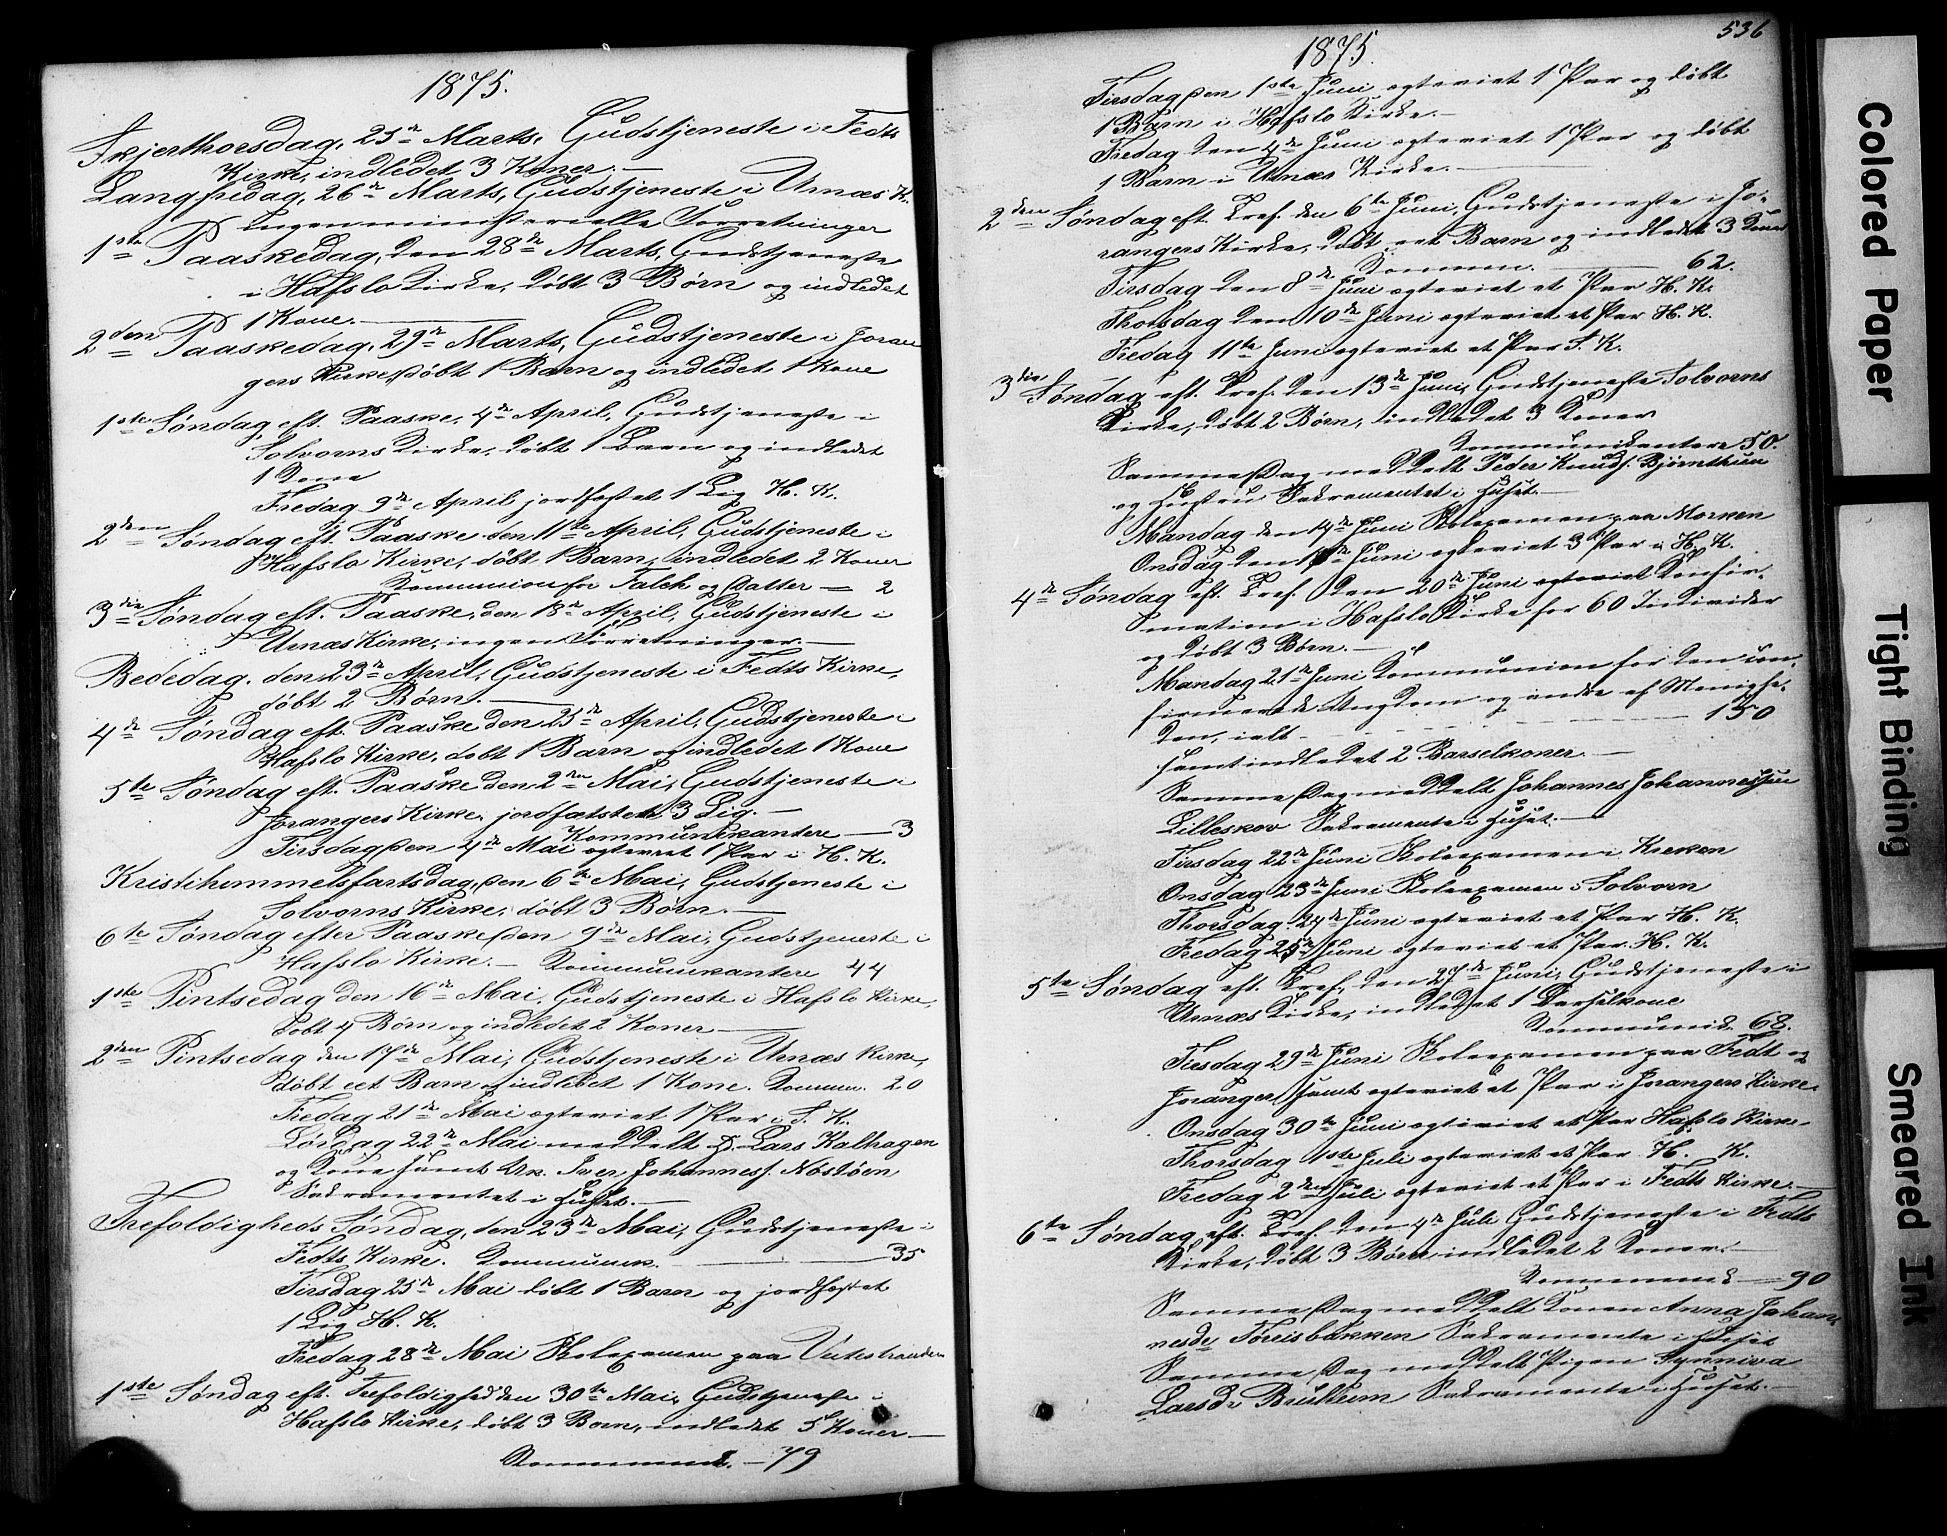 1875.
Skjerthorsdag, 25de Marts, Gudstjeneste i Fedts
Kirke, indledet 3 Koner. —
Langfredag, 26de Marts, Gudstjeneste i Urnæs K.
Ingen ministerielle Forretninger
1ste Paaskedag, den 28de Marts, Gudstjeneste
i Hafslo Kirke, døbt 3 Børn og indledet
1 Kone. —
2den Paaskedag, 29de Marts, Gudstjeneste i Joran
gers Kirke, døbt 1 Barn og indledet 1 Kone
1ste Søndag eft. Paaske, 4de April, Gudstjeneste i
Solvorns Kirke, døbt 1 Barn og indledet
1 Kone
Fredag 9de April jordfæstet 1 Lig H. K.
2den Søndag eft. Paaske den 11te April, Gudstjeneste i
Hafslo Kirke, døbt 1 Barn, indledet 2 Koner
Kommunion for Falch og Datter — 2
3die Søndag eft. Paaske, den 18de April, Gudstjeneste i
Urnæs Kirke, ingen Forretninger. —
Bededag, den 23de April, Gudstjeneste i Fedts Kirke,
døbt 2 Børn. —
4de Søndag eft. Paaske den 25de April, Gudstjeneste i
Hafslo Kirke, døbt 1 Barn og indledet 1 Kone
5te Søndag eft. Paaske den 2den Mai, Gudstjeneste i
Jorangers Kirke, jordfæstet 3 Lig. —
Kommunikantere — 3
Tirsdag den 4de Mai egteviet 1 Par i H. K.
Kristihimmelsfartsdag, den 6te Mai, Gudstjeneste i
Solvorns Kirke, døbt 3 Børn. —
6te Søndag efter Paaske den 9de Mai, Gudstjeneste i
Hafslo Kirke. — Kommunikantere 44
1ste Pintsedag den 16de Mai, Gudstjeneste i Hafslo Kirke,
døbt 4 Børn og indledet 2 Koner —
2den Pintsedag den 17de Mai, Gudstjeneste i Urnæs Kirke,
døbt eet Barn og indledet 1 Kone. Kommun. 20
Fredag 21de Mai egteviet 1 Par i S. K.
Lørdag 22de Mai meddelt Lars Kalhagen
og Kone samt Iver Johanness. Nøstøen
Sakramentet i Huset. —
Trefoldigheds Søndag, den 23de Mai, Gudstjeneste i
Fedts Kirke. Kommunik. — 35
Tirsdag 25de Mai døbt 1 Barn og jordfæstet
1 Lig H. K.
Fredag 28de Mai Skoleexamen paa Veitestranden
1ste Søndag eft. Trefoldighed den 30te Mai, Gudstjeneste i
Hafslo Kirke, døbt 3 Børn, indledet 5 Koner —
Kommunik. — 79
536
1875.
Tirsdag den 1ste Juni egteviet 1 Par og døbt
1 Barn i Hafslo Kirke. —
Fredag den 4de Juni egteviet 1 Par og døbt
1 Barn i Urnæs Kirke. —
2den Søndag eft. Tref. den 6te Juni, Gudstjeneste i Jo-
rangers Kirke, døbt eet Barn og indledet 3 Koner
Kommun. — 62.
Tirsdag den 8de Juni egteviet et Par H. K.
Thorsdag den 10de Juni egteviet et Par H. K.
Fredag 11te Juni egteviet et Par S. K.
3die Søndag eft. Tref. den 13de Juni, Gudstjeneste Solvorns
Kirke, døbt 2 Børn, indledet 3 Koner
Kommunikantere 50.
Samme Dag meddelt Peder Knuds. Bjørnthun
og Hustru Sakramentet i Huset. —
Mandag den 14de Juni Skoleexamen paa Morken
Onsdag den Juni egteviet 3 Par i H. K.
4de Søndag eft. Tref. den 20de Juni egteviet Konfir-
mation i Hafslo Kirke for 60 Individer
og døbt 3 Børn. —
Mandag 21de Juni Kommunion for den kon-
firmerede Ungdom og andre af Menighe-
den, ialt — 150
samt indledet 2 Barselkoner. —
Samme Dag meddelt Johannes Johannessen
Lilleskov Sakramente i Huset. —
Tirsdag 22de Juni Skoleexamen i Kreken
Onsdag 23de Juni Skoleexamen i Solvorn
Thorsdag 24de Juni egteviet et Par H. K.
Fredag 25de Juni egteviet et Par H. K.
5te Søndag eft. Tref. den 27de Juni, Gudstjeneste i
Urnæs Kirke, indledet 1 Barselkone
Kommunik. 68.
Tirsdag 29de Juni Skoleexamen paa Fedt og
Joranger, samt egteviet et Par i Jorangers Kirke.
Onsdag 30te Juni egteviet et Par Hafslo Kirke.
Thorsdag 1ste Juli egteviet et Par H. K.
Fredag 2den Juli egteviet et Par i Fedts Kirke. —
6te Søndag eft. Tref. den 4de Juli Gudstjeneste i Fedts
Kirke, døbt 3 Børn indledet 2 Koner. —
Kommunik — 90
Samme Dag meddelt Konen Anna Johan-
nesdr Sakramente i Huset
Samme Dag meddelt Pigen Synniva
Larsdr Bruheim Sakramente i Huset. —
Colored Paper
Tight Binding
Smeared Ink